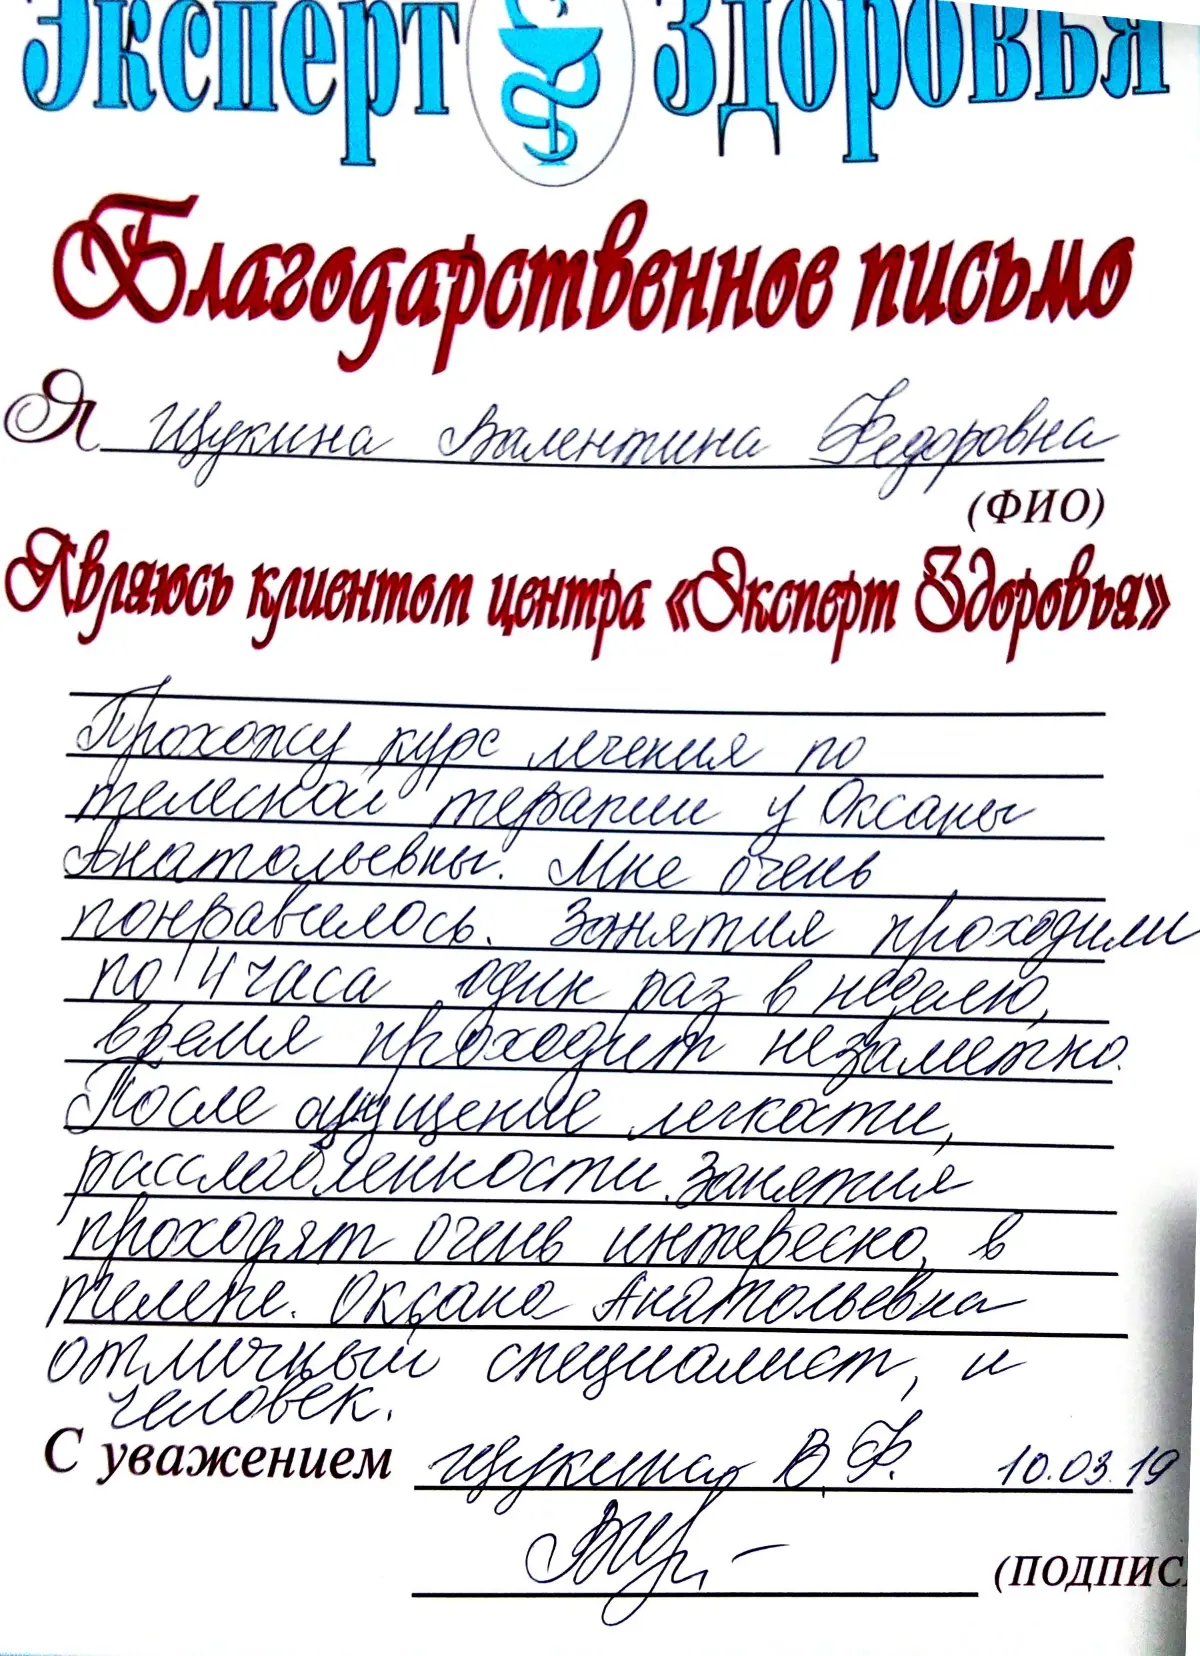 Эксперт Здоровья
Благодарственное письмо
Я Щукина Валентина Федоровна
(ФИО)
Являюсь клиентом центра «Эксперт Здоровья»
Прохожу курс лечения по
телесной терапии у Оксаны
Анатольевны. Мне очень
понравилось. Занятия проходили
по 4 часа один раз в неделю,
время проходит незаметно.
После ощущение легкости,
расслабленности. Занятия
проходят очень интересно, в
телепе. Оксана Анатольевна
отличный специалист, и
человек.
С уважением Щукина В.Ф. 10.03.19
(ПОДПИС